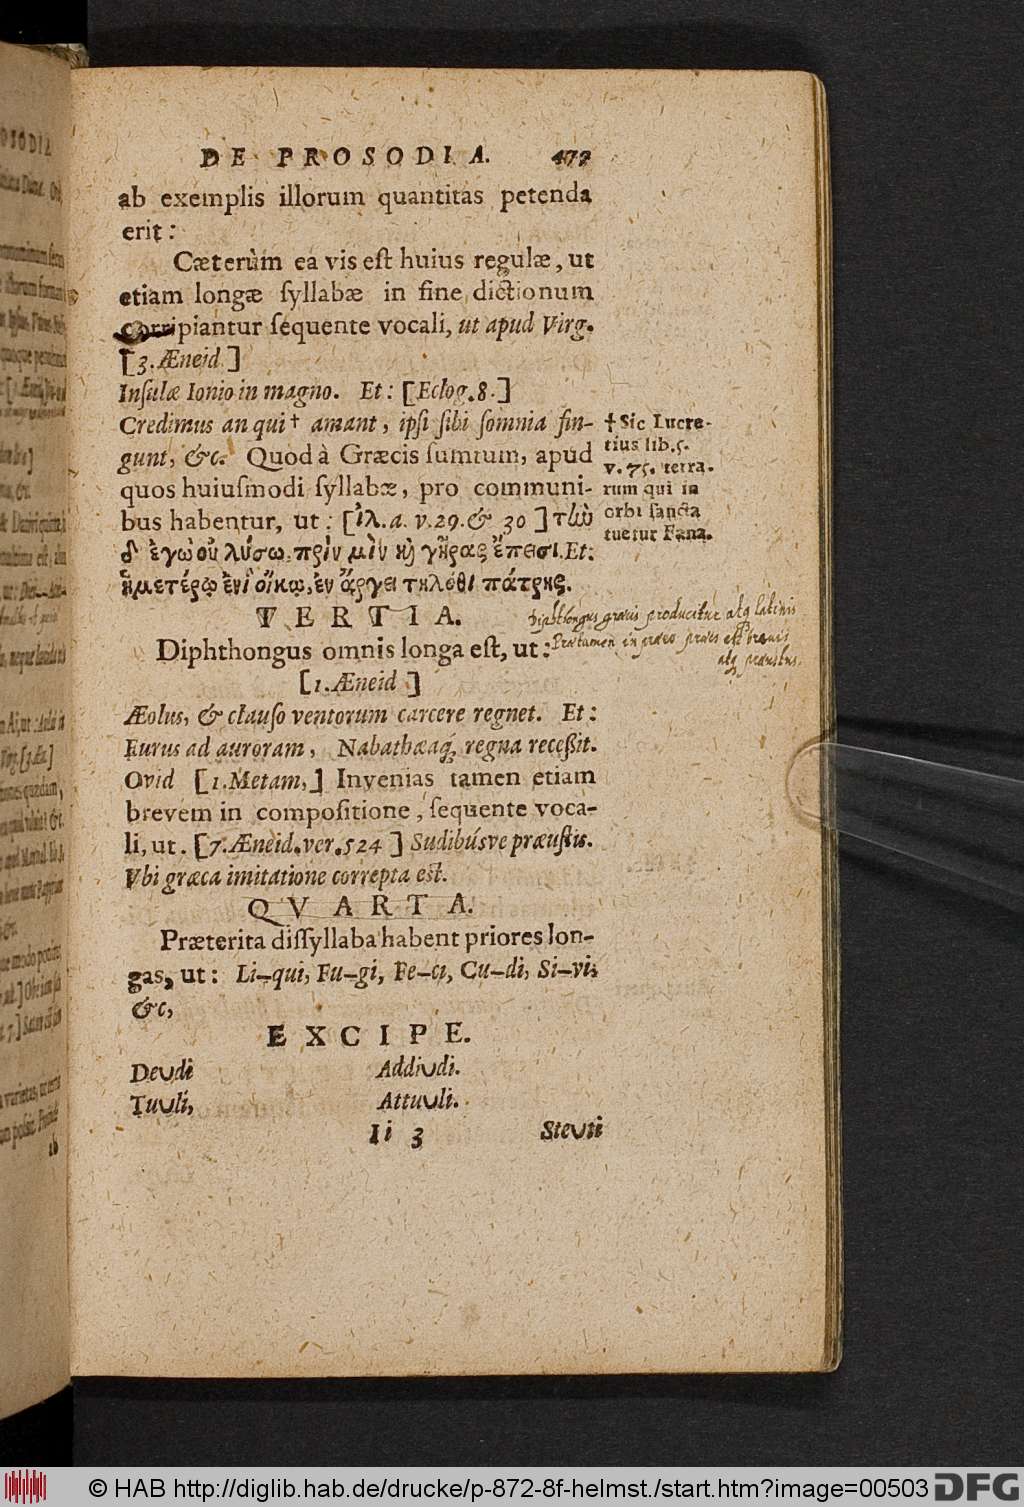 DE PROSODIA. 477
ab exemplis illorum quantitas petenda
erit:
Cæterùm ea vis est huius regulæ, ut
etiam longæ syllabæ in fine dictionum
corripiantur sequente vocali, ut apud Virg.
[3. Æneid.]
Insulæ Ionio in magno. Et: [Eclog. 8.]
Credimus an qui† amant, ipsi sibi somnia fin-
gunt, &c. Quod à Græcis sumtum, apud
quos huiusmodi syllabæ, pro communi-
bus habentur, ut: [Ἰλ. α. v. 29. & 30] τὼ
δ' ἐγὼ οὐ λύσω, πρίν μὶν καὶ γῆρας ἔπεισι. Et:
ἡμετέρῳ ἐνὶ οἴκῳ, ἐν ἄργει τηλόθι πάτρης.
† Sic Lucre-
tius lib. 5.
v. 75. terra-
rum qui in
orbi sancta
tuetur Fana.
TERTIA.
Diphthongus græcis producitur atq latinis
Præ tamen in præeo præes est brevis
atq præustus.
Diphthongus omnis longa est, ut:
[1. Æneid]
Æolus, & clauso ventorum carcere regnet. Et:
Eurus ad auroram, Nabathæaq́; regna recessit.
Ovid [1. Metam,] Invenias tamen etiam
brevem in compositione, sequente voca-
li, ut. [7. Æneid. ver. 524] Sudibúsve præustis.
Vbi græca imitatione correpta est.
QVARTA.
Præterita dissyllaba habent priores lon-
gas, ut: Li–qui, Fu–gi, Fe–ci, Cu–di, Si–vi,
&c,
EXCIPE.
De∪di Addi∪di.
Tu∪li, Attu∪li.
Ii 3 Ste∪ti
© HAB http://diglib.hab.de/drucke/p-872-8f-helmst./start.htm?image=00503 DFG